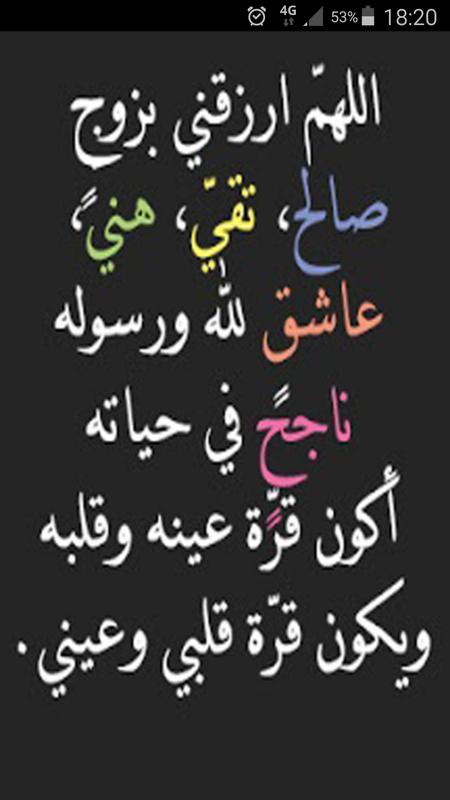 4G 53% 18:20
اللهمّ ارزقني بزوج
صالح، تقيّ، هنيً،
عاشق لله ورسوله
ناجحً في حياته
أكون قرّة عينه وقلبه
ويكون قرّة قلبي وعيني.